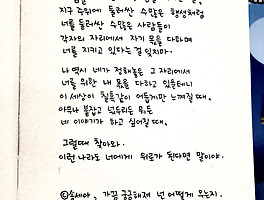 지구 주위에 둘러싼 수많은 행성처럼
너를 둘러싼 수많은 사람들이
각자의 자리에서 자기 몫을 다하며
너를 지키고 있다는 걸 잊지마.
나 역시 네가 정해놓은 그 자리에서
너를 위해 내 몫을 다하고 있을테니,
이 세상이 칠흑같이 어둡게만 느껴질 때,
아무나 붙잡고 넋두리든 뭐든
네 이야기가 하고 싶어질 때.
그럴때 찾아와.
이런 나라도 너에게 위로가 된다면 말이야.
ⓒ송세아, 가끔 궁금해져 넌 어떻게 우는지.